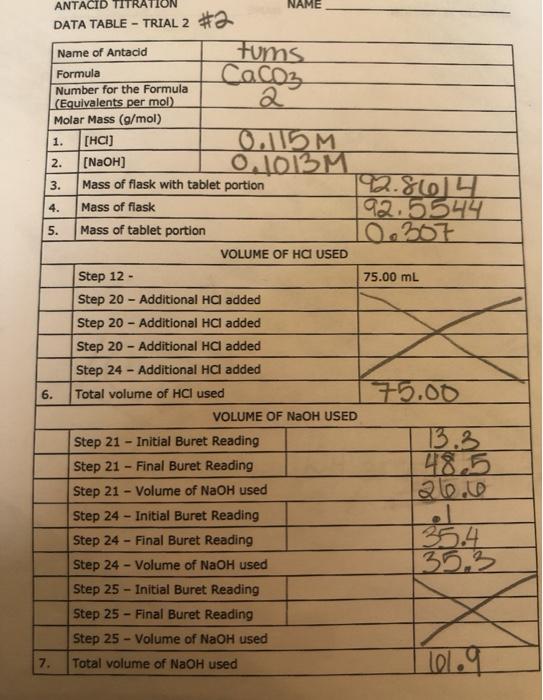 ANTACID TITRATION NAME
DATA TABLE – TRIAL 2 #2
Name of Antacid tums
Formula CaCO3
Number for the Formula
(Equivalents per mol) 2
Molar Mass (g/mol)
1. [HCl] 0.115M
2. [NaOH] 0.1013M
3. Mass of flask with tablet portion 92.8614
4. Mass of flask 92.5544
5. Mass of tablet portion 0.307
VOLUME OF HCl USED
Step 12 - 75.00 mL
Step 20 – Additional HCl added
Step 20 – Additional HCl added
Step 20 – Additional HCl added
Step 24 – Additional HCl added
6. Total volume of HCl used 75.00
VOLUME OF NaOH USED
Step 21 – Initial Buret Reading 13.3
Step 21 – Final Buret Reading 48.5
Step 21 – Volume of NaOH used 26.6
Step 24 – Initial Buret Reading .1
Step 24 – Final Buret Reading 35.4
Step 24 – Volume of NaOH used 35.3
Step 25 – Initial Buret Reading
Step 25 – Final Buret Reading
Step 25 – Volume of NaOH used
7. Total volume of NaOH used 101.9